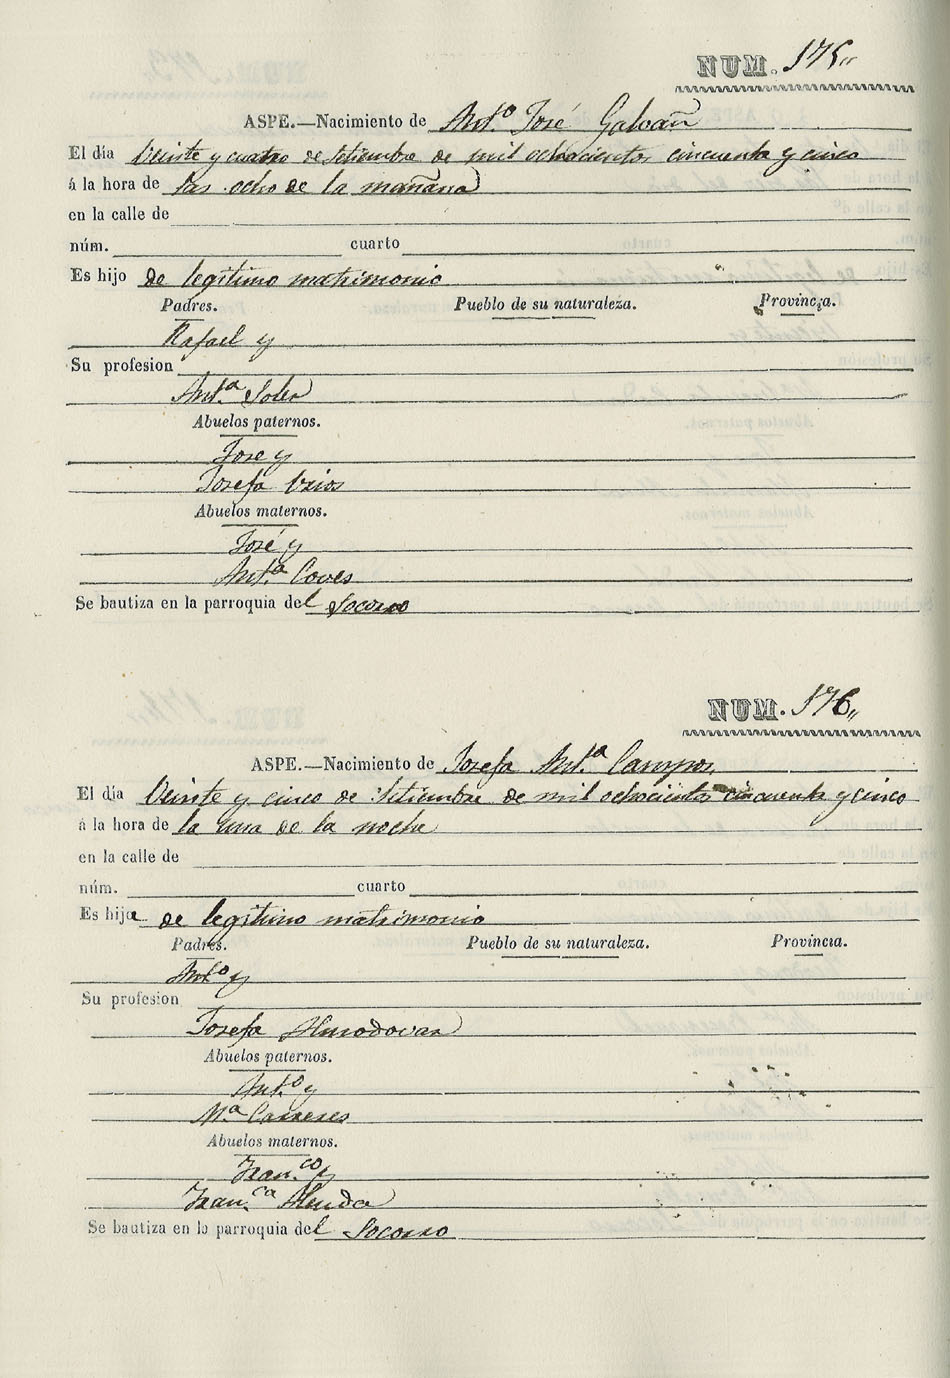 NUM. 175"
ASPE.—Nacimiento de Ant.º José Galvañ
El día Veinte y cuatro de Setiembre de mil ochocientos cincuenta y cinco
á la hora de las ocho de la mañana
en la calle de
núm. cuarto
Es hijo de legitimo matrimonio
Padres. Pueblo de su naturaleza. Provincia.
Rafael y
Su profesion
Ant.ª Soler
Abuelos paternos.
Jose y
Josefa Urios
Abuelos maternos.
José y
Ant.ª Coves
Se bautiza en la parroquia del Socorro
NUM. 176"
ASPE.—Nacimiento de Josefa Ant.ª Campos
El día Veinte y cinco de Setiembre de mil ochocientos cincuenta y cinco
á la hora de la una de la noche
en la calle de
núm. cuarto
Es hija de legitimo matrimonio
Padres. Pueblo de su naturaleza. Provincia.
Ant.º y
Su profesion
Josefa Almodovar
Abuelos paternos.
Ant.º y
M.ª Carreres
Abuelos maternos.
Fran.co y
Fran.ca Almda
Se bautiza en la parroquia del Socorro